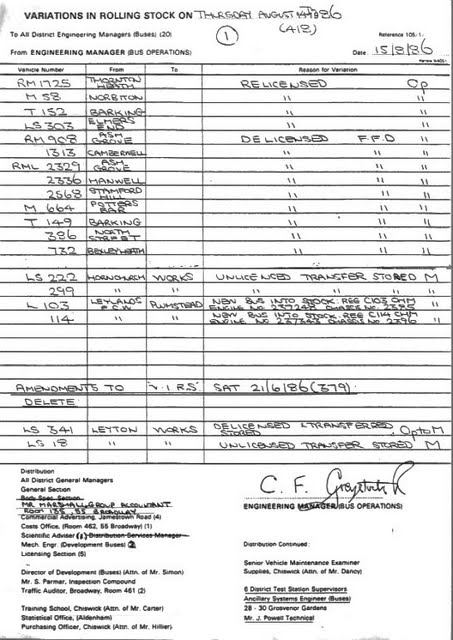 VARIATIONS IN ROLLING STOCK ON THURSDAY AUGUST 14TH 1986
(418)
(1)
To All District Engineering Managers (Buses) (20)
Reference 105/-
From ENGINEERING MANAGER (BUS OPERATIONS) Date 15/8/86
Vehicle Number From To Reason for Variation
RM1725 THORNTON HEATH RELICENSED Op
M 58 NORBITON " "
T 152 BARKING " "
LS 303 ELMERS END " "
RM 908 ASH GROVE DELICENSED F.F.D "
1313 CAMBERWELL " " "
RML 2329 ASH GROVE " " "
2336 HANWELL " " "
2568 STAMFORD HILL " " "
M 664 POTTERS BAR " " "
T 149 BARKING " " "
386 NORTH STREET " " "
732 BEXLEYHEATH " " "
LS 222 HORNCHURCH WORKS UNLICENSED TRANSFER STORED M
299 " " " " " "
L 103 LEYLANDS E.C.W PLUMSTEAD NEW BUS INTO STOCK. REG C103 CHM "
ENGINE No 237248 CHASSIS No 2385
114 " " NEW BUS INTO STOCK. REG C114 CHM "
ENGINE No 237343 CHASSIS No 2396
AMENDMENTS TO V.I.R.S' SAT 21/6/86 (379)
DELETE:
LS 341 LEYTON WORKS DELICENSED & TRANSFERRED STORED Op to M
LS 18 " " UNLICENSED TRANSFER STORED M
Distribution
All District General Managers
General Section
Body Spec. Section
MR MARSHALL GROUP ACCOUNTANT
ROOM 135, 55 BROADWAY
Commercial Advertising, Jamestown Road (4)
Costs Office, (Room 462, 55 Broadway) (1)
Scientific Adviser (1) Distribution Services Manager
Mech. Engr. (Development Buses) 2
Licensing Section (5)
Director of Development (Buses) (Attn. of Mr. Simon)
Mr. S. Parmar, Inspection Compound
Traffic Auditor, Broadway, Room 461 (2)
Training School, Chiswick (Attn. of Mr. Carter)
Statistical Office, (Aldenham)
Purchasing Officer, Chiswick (Attn. of Mr. Hillier)
C. F.
ENGINEERING MANAGER (BUS OPERATIONS)
Distribution Continued:
Senior Vehicle Maintenance Examiner
Supplies, Chiswick (Attn. of Mr. Dancy)
6 District Test Station Supervisors
Ancillary Systems Engineer (Buses)
28 - 30 Grosvenor Gardens
Mr. J. Powell Technical